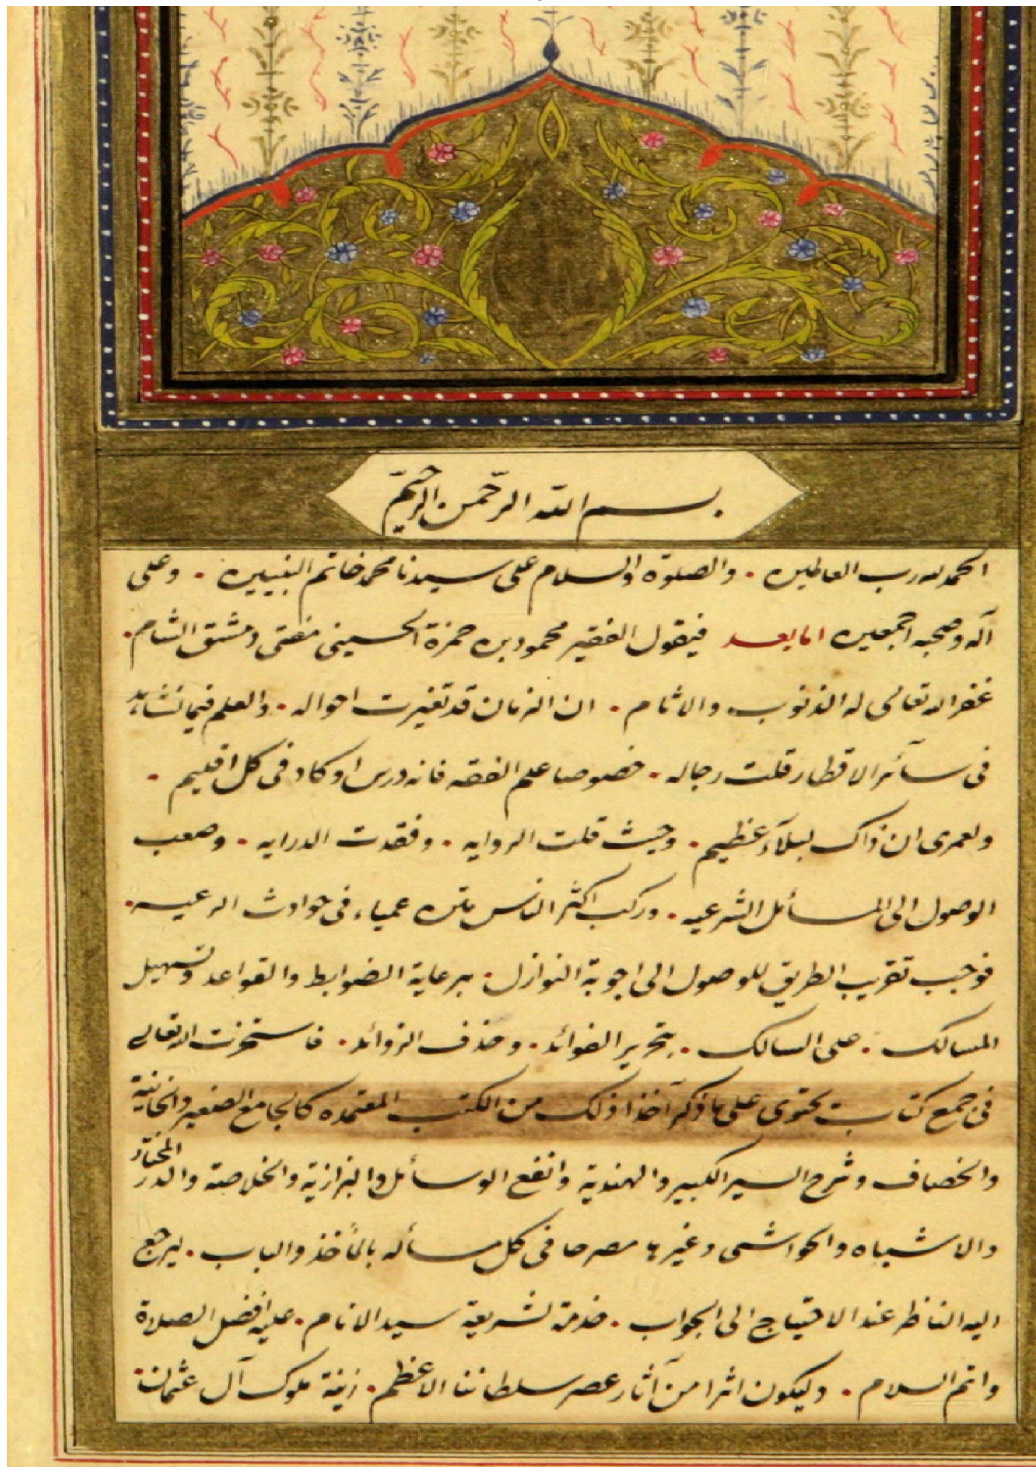 بسم الله الرحمن الرحيم
الحمد لله رب العالمين . والصلوة والسلام على سيدنا محمد خاتم النبيين . وعلى
آله وصحبه اجمعين اما بعد فيقول الفقير محمود بن حمزة الحسينى مفتى دمشق الشام .
غفر الله تعالى له الذنوب والاثام . ان الزمان قد تغيرت احواله . والعلم فيما نشاهد
فى سآئر الاقطار قلت رجاله . خصوصا علم الفقه فانه درس او كاد فى كل اقليم .
ولعمرى ان ذاك لبلآء عظيم . وحيث قلت الروايه . وفقدت الدرايه . وصعب
الوصول الى المسائل الشرعيه . وركب اكثر الناس متن عمياء فى حوادث الرعيه .
فوجب تقريب الطريق للوصول الى اجوبة النوازل . برعاية الضوابط والقواعد وتسهيل
المسالك . على السالك . بتحرير الفوائد . وحذف الزوائد . فاستخرت الله تعالى
فى جمع كتاب يحتوى على ما ذكر آخذا ذلك من الكتب المعتمده كالجامع الصغير والخانية
والخصاف وشرح السير الكبير والهندية وانفع الوسائل والبزازية والخلاصة والدر المختار
والاشباه والحواشى وغيرها مصرحا فى كل مسأله بالمأخذ والباب . ليرجع
اليه الناظر عند الاحتياج الى الجواب . خدمة لشريعة سيد الانام . عليه افضل الصلاة
واتم السلام . وليكون اثرا من آثار عصر سلطاننا الاعظم . زينة ملوك آل عثمان .